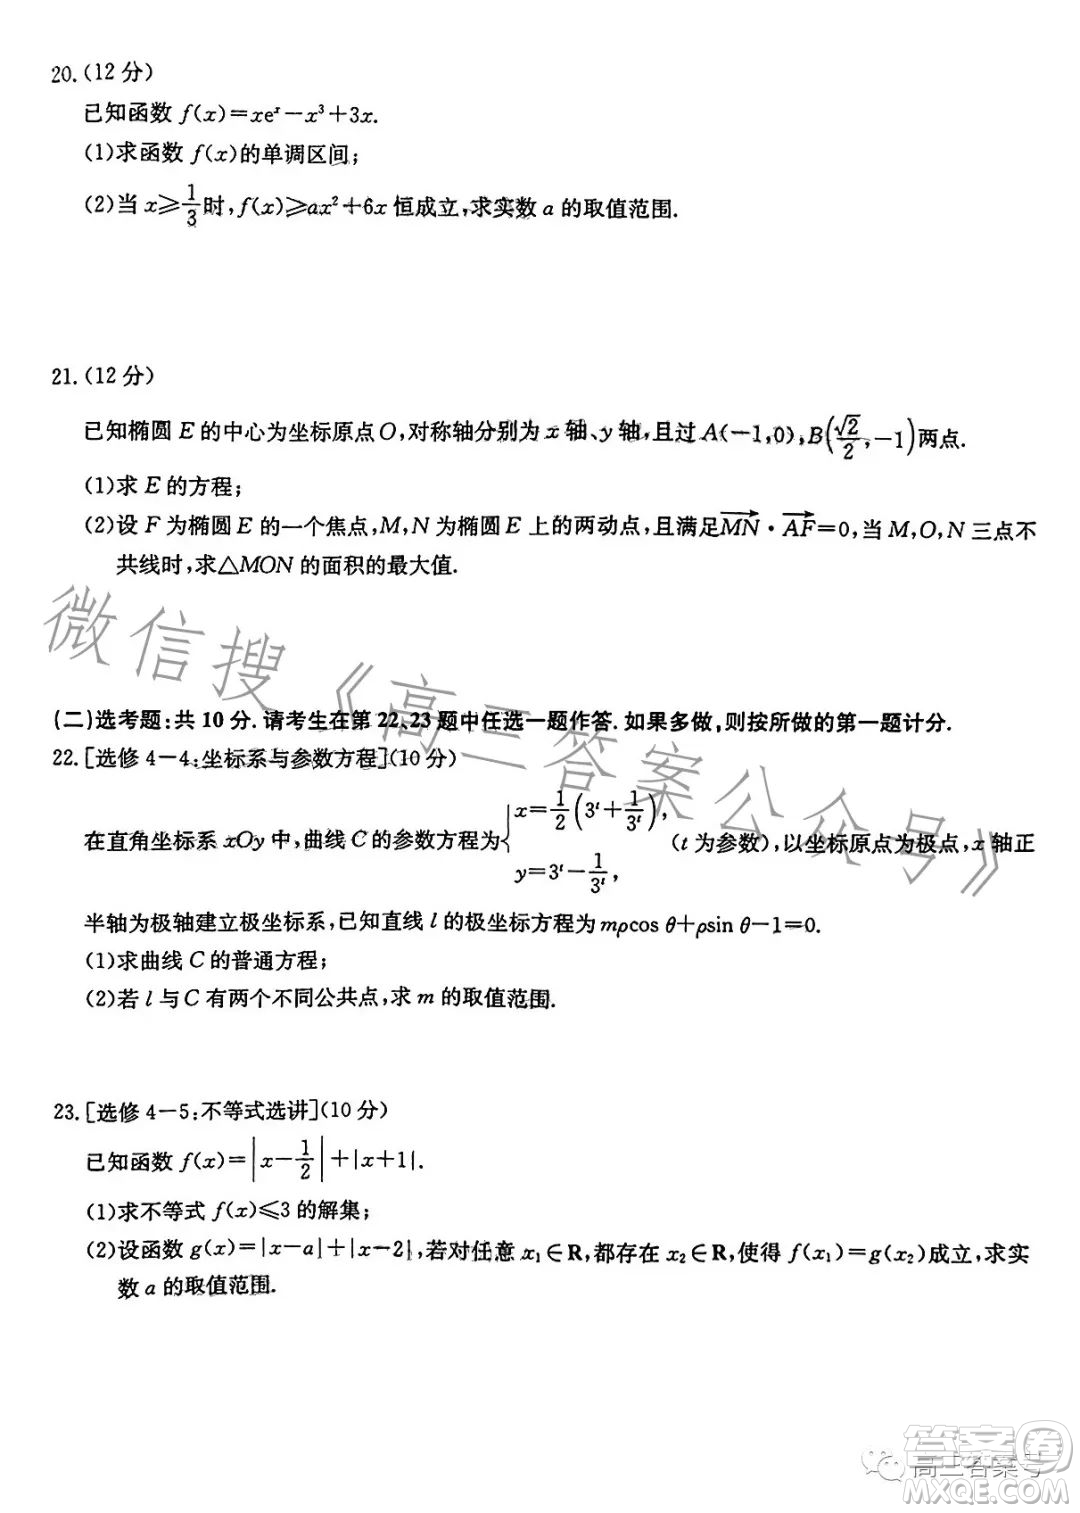 20.(12 分)
已知函数 f(x)=xeˣ-x³+3x.
(1)求函数 f(x)的单调区间;
(2)当 x≥1/3时,f(x)≥ax²+6x 恒成立,求实数 a 的取值范围.
21.(12 分)
已知椭圆 E 的中心为坐标原点O,对称轴分别为 x 轴、y 轴,且过 A(-1,0),B(√2/2,-1)两点.
(1)求 E 的方程;
(2)设 F 为椭圆 E 的一个焦点,M,N 为椭圆 E 上的两动点,且满足MN→·AF→=0,当 M,O,N 三点不
共线时,求△MON 的面积的最大值.
微信搜《高三答案公众号》
(二)选考题:共 10 分.请考生在第 22,23 题中任选一题作答.如果多做,则按所做的第一题计分.
22.[选修 4-4:坐标系与参数方程](10 分)
在直角坐标系 xOy 中,曲线 C 的参数方程为{x=1/2(3ᵗ+1/3ᵗ), y=3ᵗ-1/3ᵗ,(t 为参数),以坐标原点为极点,x 轴正
半轴为极轴建立极坐标系,已知直线 l 的极坐标方程为 mρcos θ+ρsin θ-1=0.
(1)求曲线 C 的普通方程;
(2)若 l 与 C 有两个不同公共点,求 m 的取值范围.
23.[选修 4-5:不等式选讲](10 分)
已知函数 f(x)=|x-1/2|+|x+1|.
(1)求不等式 f(x)≤3 的解集;
(2)设函数 g(x)=|x-a|+|x-2|,若对任意 x₁∈R,都存在 x₂∈R,使得 f(x₁)=g(x₂)成立,求实
数 a 的取值范围.
高三答案号
答案圈
MXQE.COM